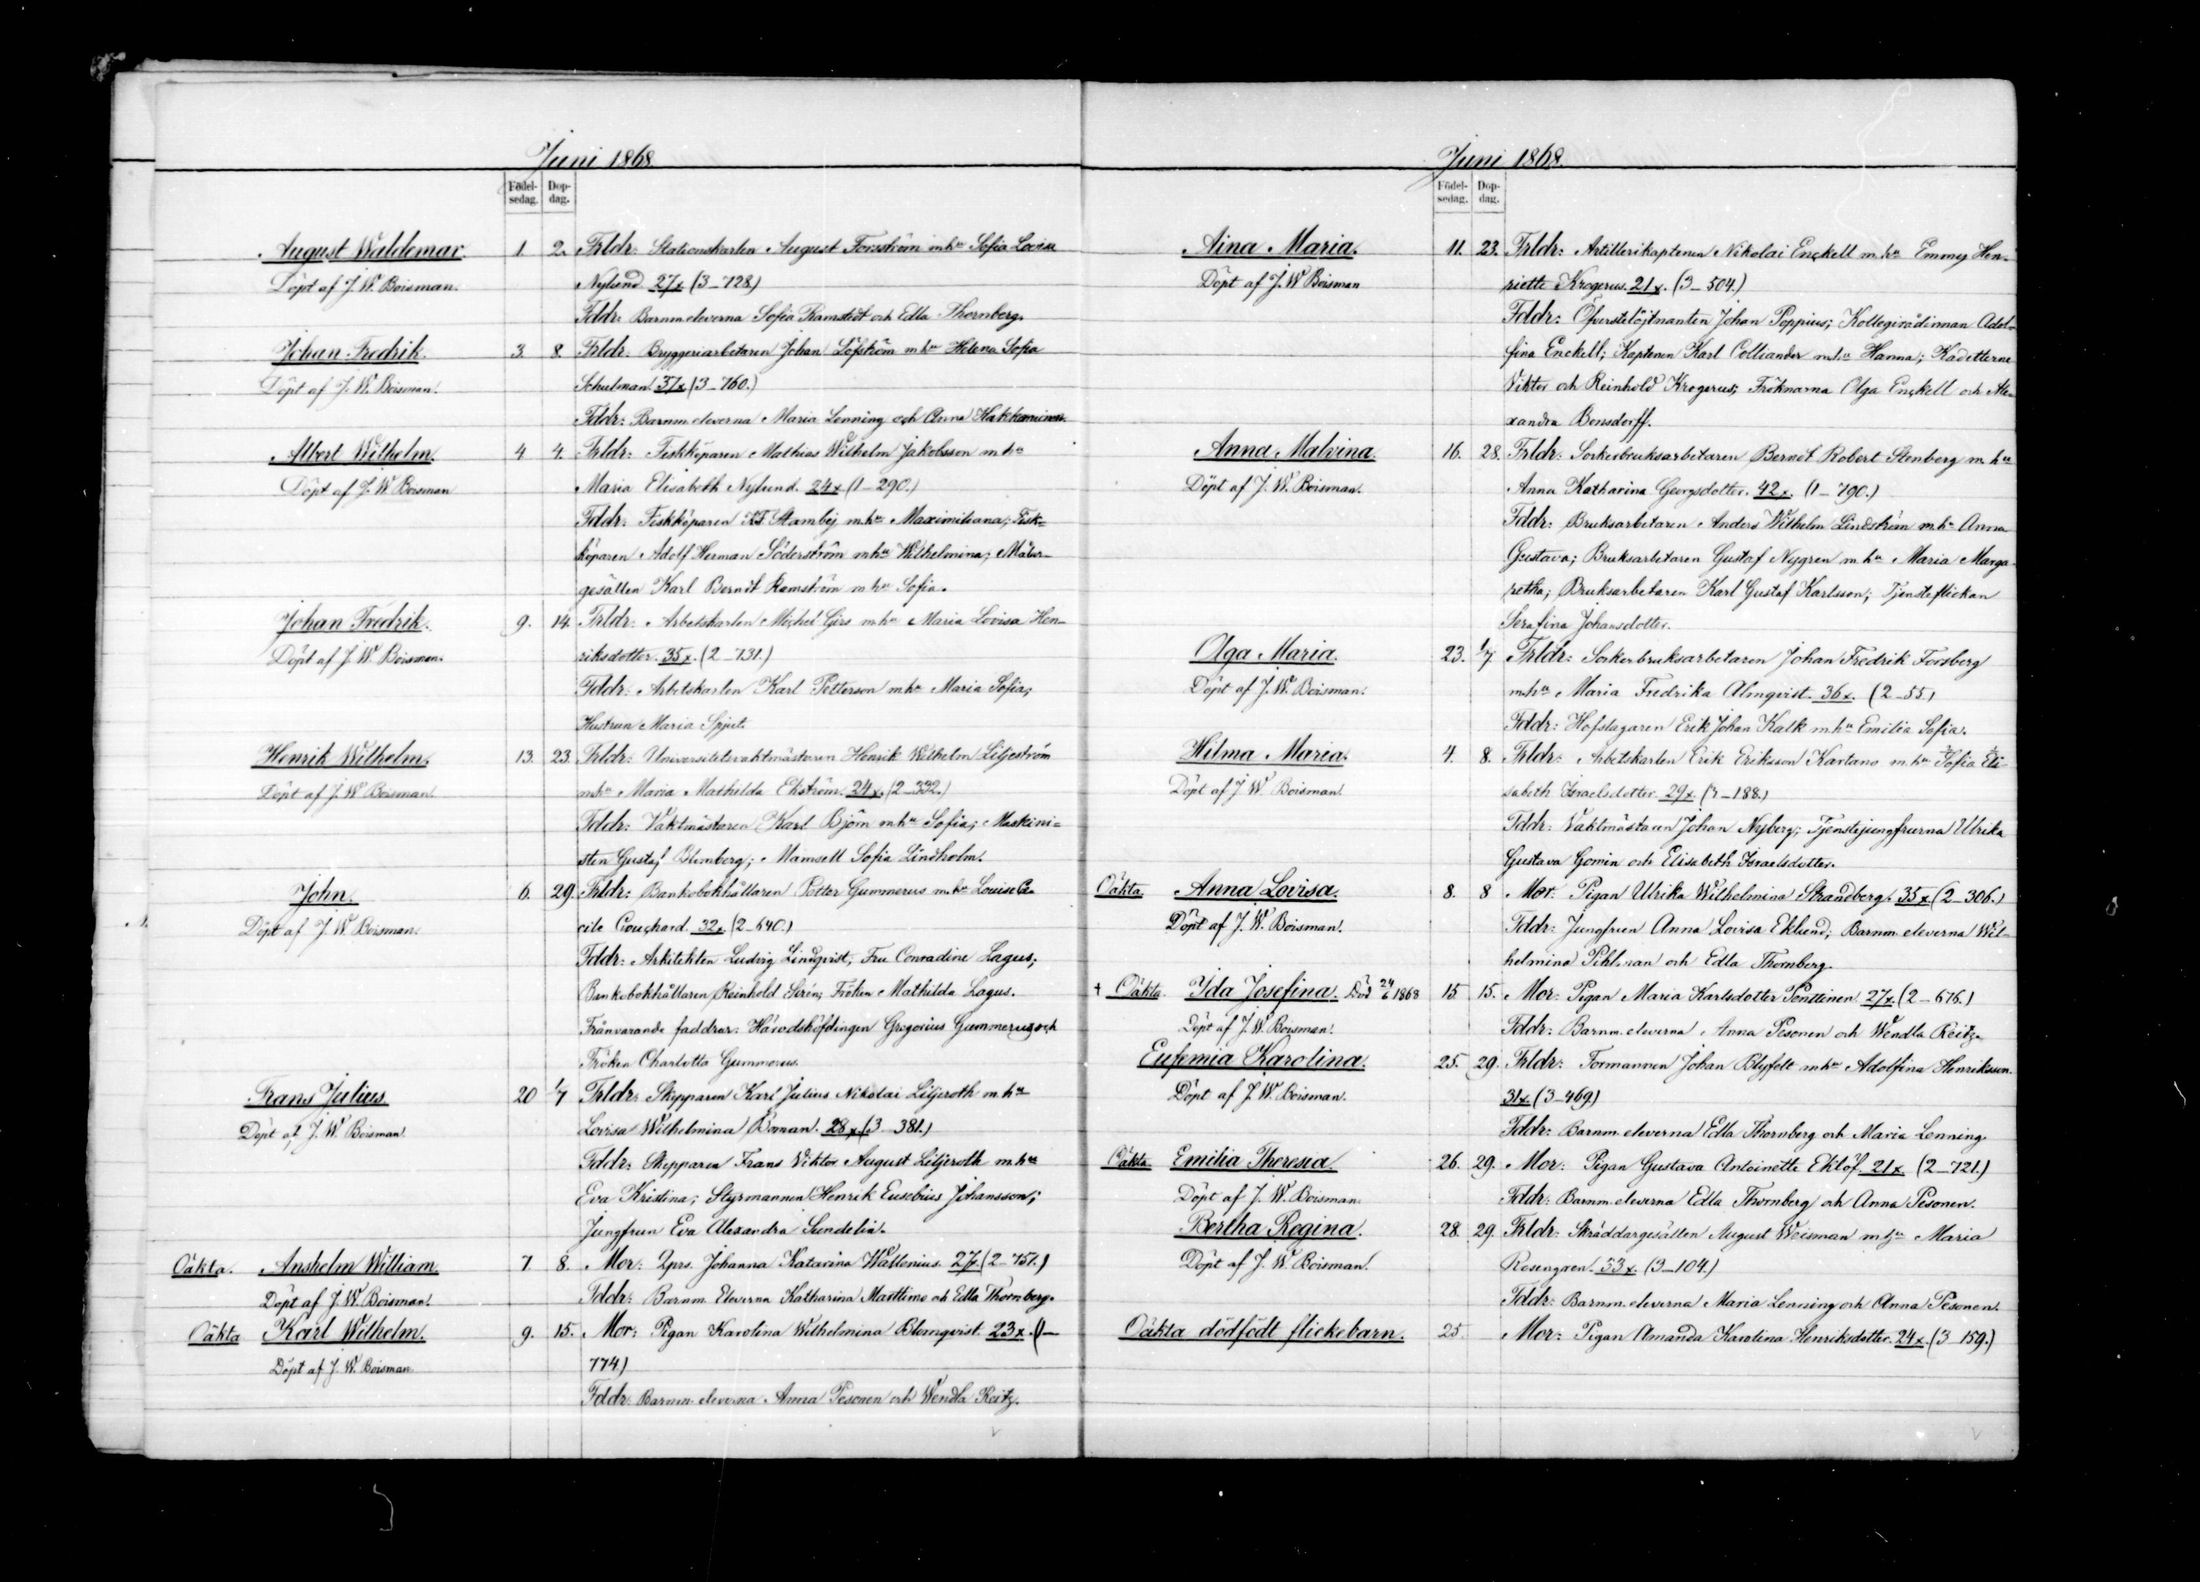 Juni 1868
Födel-sedag. Dop-dag.
August Waldemar. 1. 2. Frldr: Stationskarlen August Forsström m. hu Sofia Lovisa
Döpt af J. W. Boisman. Nylund 27x (3-728.)
Fddr: Barnm. eleverna Sofia Ramstedt och Edla Thornberg.
Johan Fredrik. 3. 8. Frldr: Bryggeriarbetaren Johan Löfström m. hu Helena Sofia
Döpt af J. W. Boisman. Schulman. 37x (3-760.)
Fddr: Barnm. eleverna Maria Lenning och Anna Hakkarainen.
Albert Wilhelm. 4 4. Frldr: Fiskköparen Mathias Wilhelm Jakobsson m. hu
Döpt af J. W. Boisman Maria Elisabeth Nylund. 24x (1-290.)
Fddr: Fiskköparen Stambej m. hu Maximiliana; Fisk-
köparen Adolf Herman Söderström m. hu Wilhelmina; Målar-
gesällen Karl Berndt Ramström m. hu Sofia.
Johan Fredrik. 9. 14. Frldr: Arbetskarlen Michel Girs m. hu Maria Lovisa Hen-
Döpt af J. W. Boisman. riksdotter. 35x. (2-731.)
Fddr: Arbetskarlen Karl Petterson m. hu Maria Sofia;
Hustrun Maria Spjut.
Henrik Wilhelm. 13. 23. Frldr: Universitetsvaktmästaren Henrik Wilhelm Liljeström
Döpt af J. W. Boisman. m. hu Maria Mathilda Ekström. 24x. (2-332.)
Fddr: Vaktmästaren Karl Björn m. hu Sofia; Maskini-
sten Gustaf Blomberg; Mamsell Sofia Lindholm.
John. 6. 29. Frldr: Bankobokhållaren Petter Gummerus m. hu Louise Ce-
Döpt af J. W. Boisman. cile Couchard. 32x. (2-640.)
Fddr: Arkitekten Ludvig Lindqvist, Fru Conradine Lagus;
Bankobokhållaren Reinhold Sirén; Fröken Mathilda Lagus.
Frånvarande faddrar: Häradshöfdingen Gregorius Gummerus och
Fröken Charlotta Gummerus.
Frans Julius. 20 1/7 Frldr: Skepparen Karl Julius Nikolai Liljeroth m. hu
Döpt af J. W. Boisman. Lovisa Wilhelmina Boman. 28x. (3-381.)
Fddr: Skepparen Frans Viktor August Liljeroth m. hu
Eva Kristina; Styrmannen Henrik Eusebius Johansson;
Jungfrun Eva Alexandra Sundelia.
Oäkta. Anshelm William 7. 8. Mor: Johanna Katarina Wallenius. 27. (2-757.)
Döpt af J. W. Boisman. Fddr: Barnm. Eleverna Katharina Marttimo och Edla Thornberg.
Oäkta Karl Wilhelm. 9. 15. Mor: Pigan Karolina Wilhelmina Blomqvist. 23x. (1-
Döpt af J. W. Boisman 774)
Fddr: Barnm. eleverna Anna Pesonen och Wendla Reitz.
Juni 1868.
Födel-sedag. Dop-dag.
Aina Maria. 11. 23. Frldr: Artillerikaptenen Nikolai Enckell m. hu Emmy Hen-
Döpt af J. W Boisman riette Krogerus. 21x. (3-504.)
Fddr: Öfverstelöjtnanten Johan Poppius; Kollegirådinnan Adol-
fina Enckell; Kaptenen Karl Colliander m. hu Hanna; Kadetterne
Viktor och Reinhold Krogerus; Fröknarna Olga Enckell och Ale-
xandra Bonsdorff.
Anna Malvina. 16. 28. Frldr: Sockerbruksarbetaren Berndt Robert Stenberg m. hu
Döpt af J. W. Boisman. Anna Katharina Georgsdotter. 42x. (1-790.)
Fddr: Bruksarbetaren Anders Wilhelm Lindström m. hu Anna
Gustava; Bruksarbetaren Gustaf Nygren m. hu Maria Marga-
retha; Bruksarbetaren Karl Gustaf Karlsson; Tjensteflickan
Serafina Johansdotter.
Olga Maria. 23. 1/7 Frldr: Sockerbruksarbetaren Johan Fredrik Forsberg
Döpt af J. W. Boisman. m. hu Maria Fredrika Almqvist. 36x. (2-55.)
Fddr: Hofslagaren Erik Johan Kalk m. hu Emilia Sofia.
Hilma Maria. 4. 8. Frldr: Arbetskarlen Erik Eriksson Kartano m. hu Sofia Eli-
Döpt af J. W. Boisman. sabeth Israelsdotter. 29x. (3-188.)
Fddr: Vaktmästaren Johan Nyberg; Tjenstejungfrurna Ulrika
Gustava Gomin och Elisabeth Israelsdotter.
Oäkta. Anna Lovisa. 8. 8 Mor: Pigan Ulrika Wilhelmina Strandberg. 35x (2-306.)
Döpt af J. W. Boisman. Fddr: Jungfrun Anna Lovisa Eklund; Barnm. eleverna Wil-
helmina Pihlman och Edla Thornberg.
+ Oäkta. Ida Josefina. Död 24/6 1868 15. 15. Mor: Pigan Maria Karlsdotter Penttinen. 27x. (2-676.)
Döpt af J. W. Boisman. Fddr: Barnm. eleverna Anna Pesonen och Wendla Reitz.
Eufemia Karolina. 25. 29. Frldr: Formannen Johan Blyfelt m. hu Adolfina Henriksson.
Döpt af J. W. Boisman. 31x. (3-469.)
Fddr: Barnm. eleverna Edla Thornberg och Maria Lenning.
Oäkta Emilia Theresia 26. 29. Mor: Pigan Gustava Antoinette Eklöf. 21x. (2-721.)
Döpt af J. W. Boisman. Fddr: Barnm. eleverna Edla Thornberg och Anna Pesonen.
Bertha Regina. 28. 29. Frldr: Skräddargesällen August Weisman m. hu Maria
Döpt af J. W. Boisman. Rosengren. 33x. (3-104.)
Fddr: Barnm. eleverna Maria Lenning och Anna Pesonen.
Oäkta dödfödt flickebarn. 25. Mor: Pigan Amanda Karolina Henriksdotter. 24x. (3-159.)